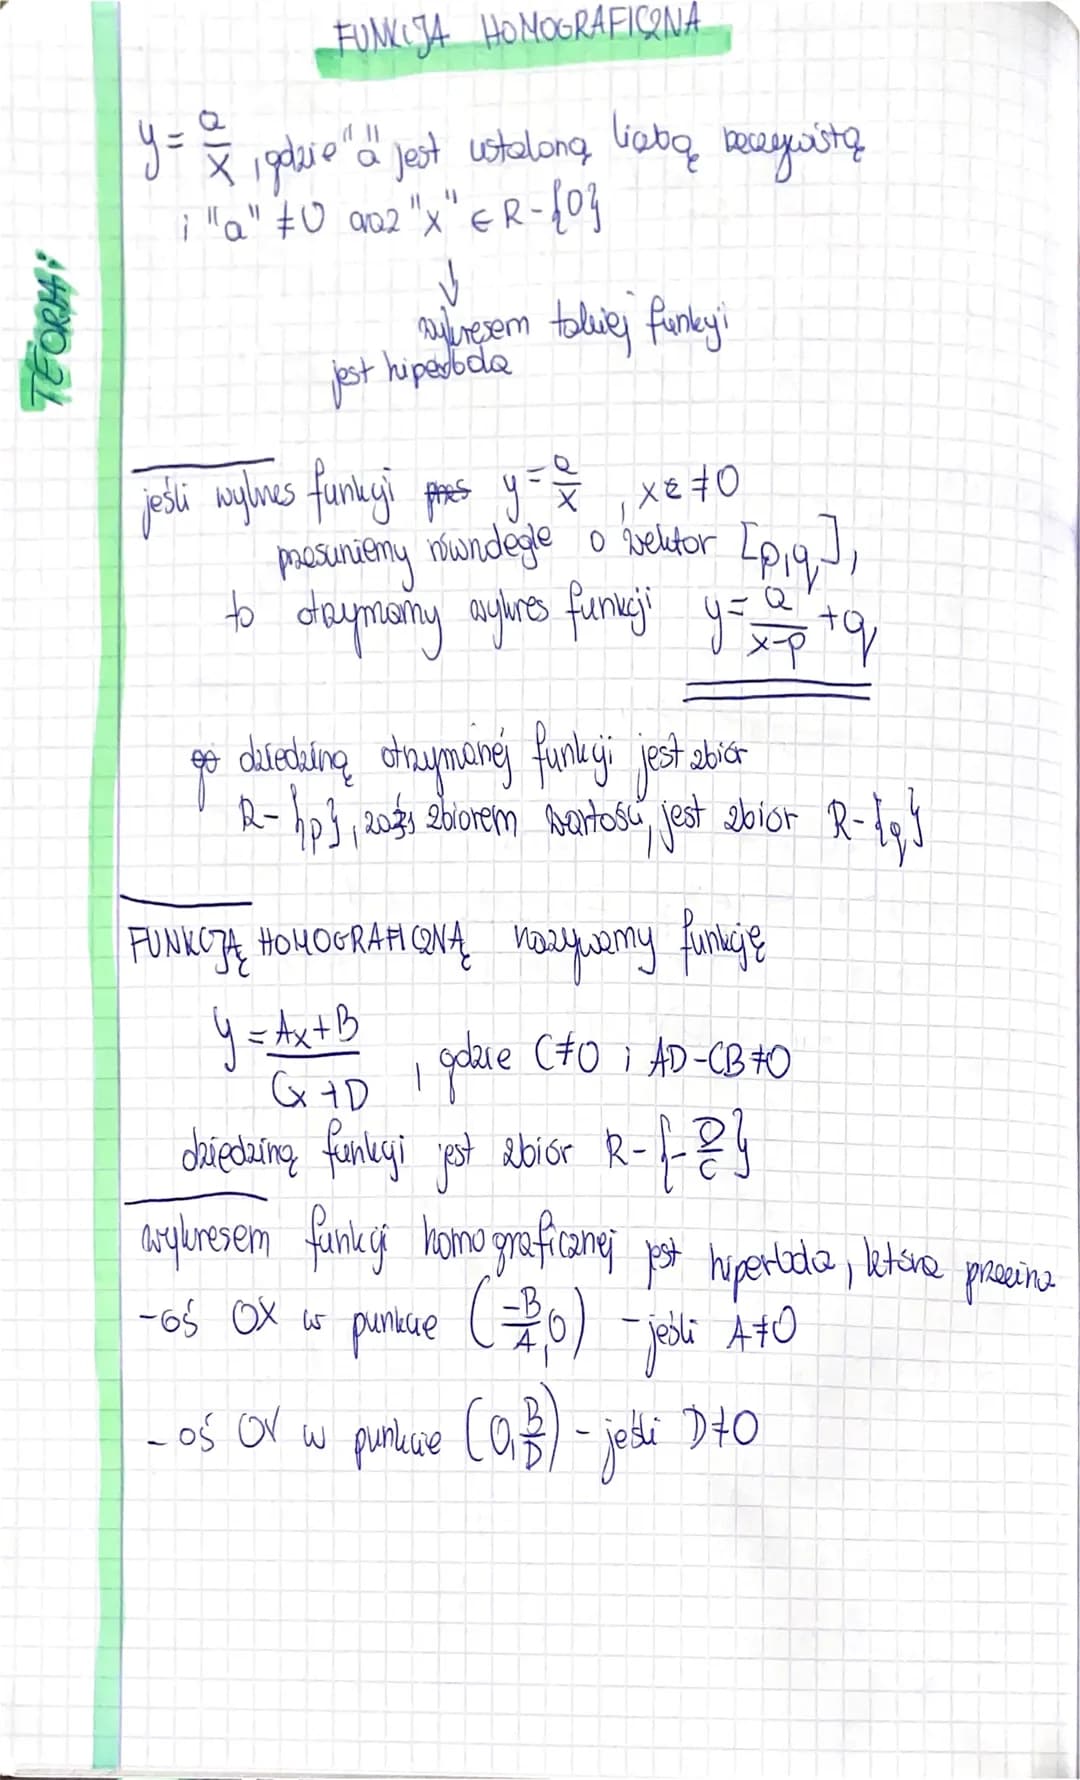 FUNKCJA HOMOGRAFICZNA
TEORIA:
y = a/x , gdzie "a" jest ustaloną liczbą rzeczywistą
i "a" ≠ 0 oraz "x" ∈ R - {0}
↓
wykresem takiej funkcji
jest hiperbola
jeśli wykres funkcji y = a/x , x ≠ 0
przesuniemy równolegle o wektor [p,q],
to otrzymamy wykres funkcji y = a/(x-p) + q
dziedziną otrzymanej funkcji jest zbiór
R - {p}, zaś zbiorem wartości, jest zbiór R - {q}
FUNKCJĄ HOMOGRAFICZNĄ nazywamy funkcję
y = (Ax+B)/(Cx+D) , gdzie C≠0 i AD-CB≠0
dziedziną funkcji jest zbiór R - {-D/C}
wykresem funkcji homograficznej jest hiperbola, która przecina
- oś OX w punkcie (-B/A, 0) - jeśli A≠0
- oś OY w punkcie (0, B/D) - jeśli D≠0